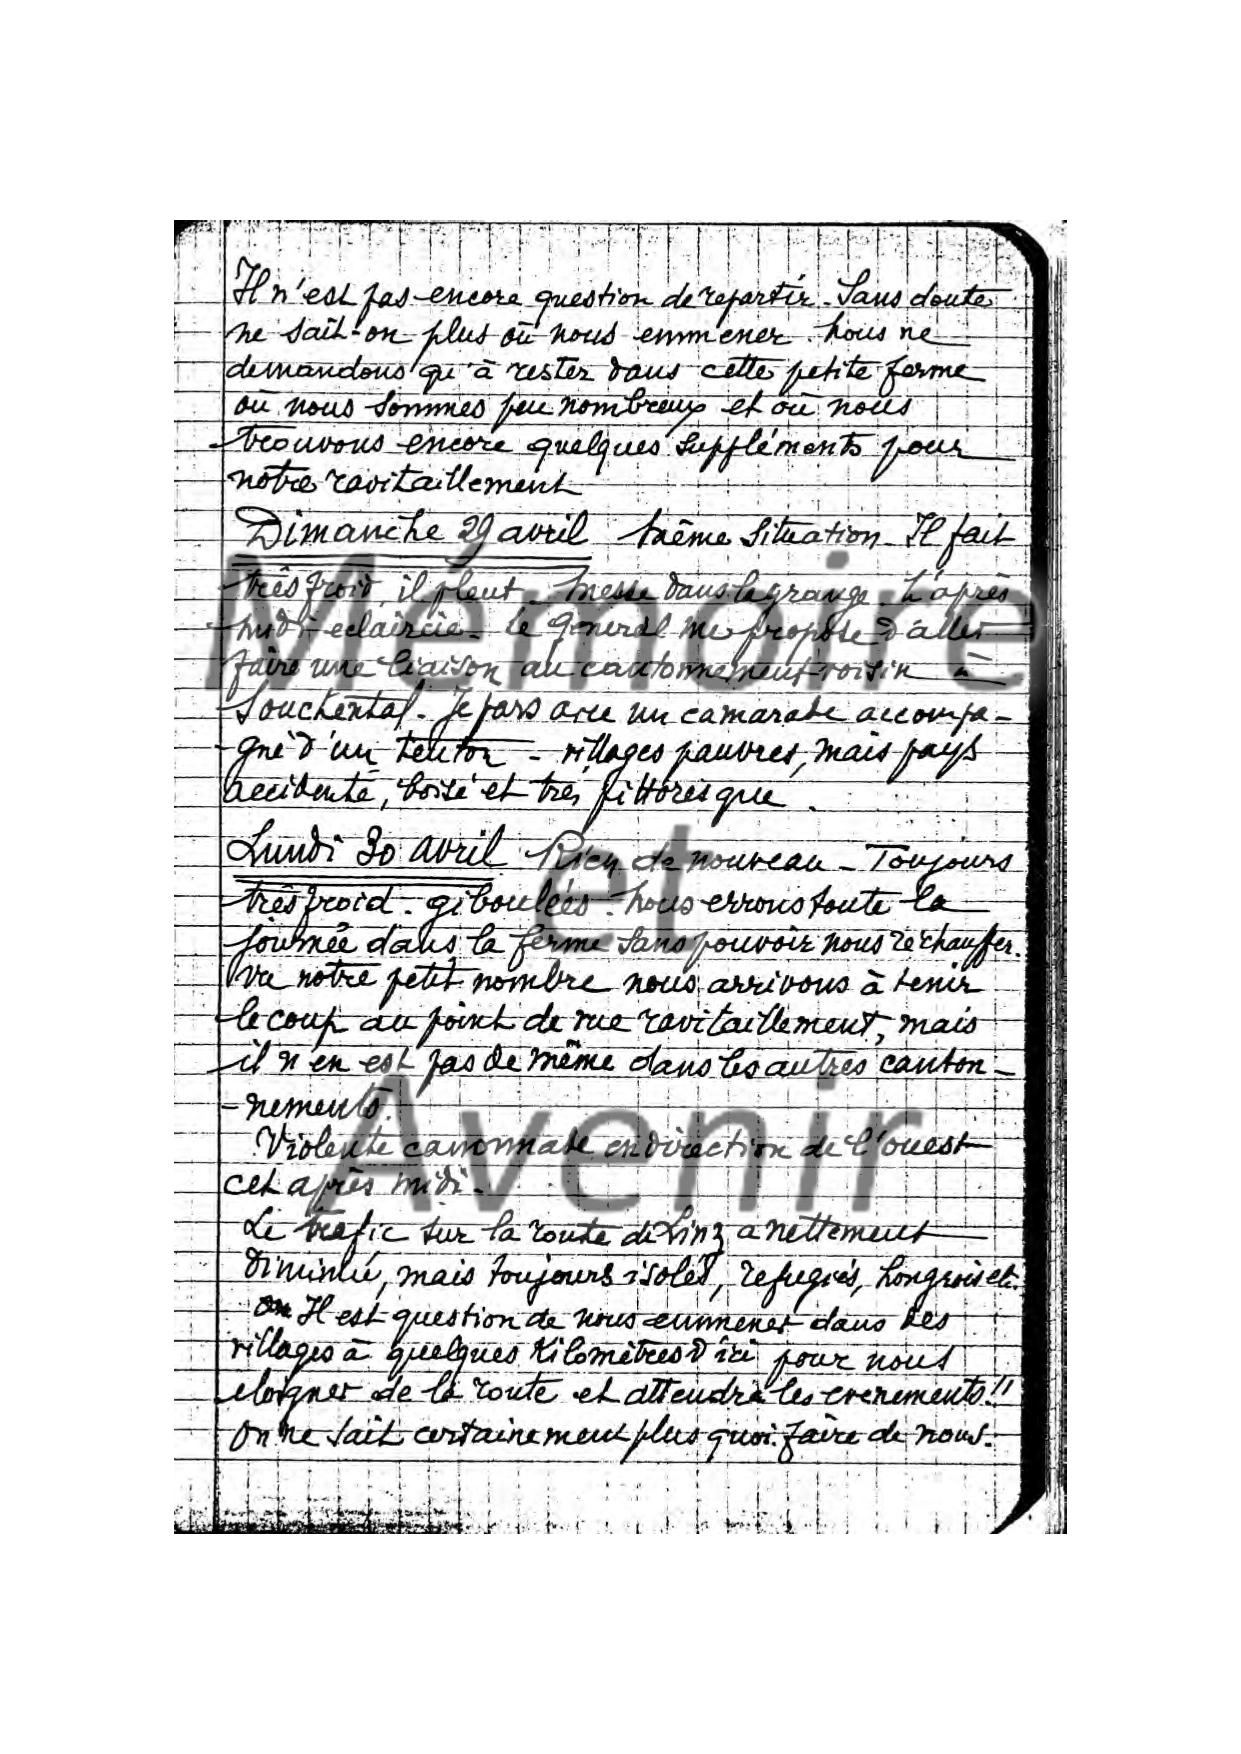 Il n'est pas encore question de repartir. Sans doute
ne sait-on plus où nous emmener. Nous ne
demandons qu'à rester dans cette petite ferme
où nous sommes peu nombreux et où nous
trouvons encore quelques suppléments pour
notre ravitaillement
Dimanche 29 avril Même situation. Il fait
très froid, il pleut. Messe dans la grange. L'après
midi eclaircie. Le General me propose d'aller
faire une liaison au cantonnement voisin =
Souchental. Je pars avec un camarade accompa-
gné d'un teuton - villages pauvres, mais pays
accidenté, boisé et très pittoresque.
Lundi 30 avril Rien de nouveau - Toujours
très froid. giboulées. Nous errons toute la
journée dans la ferme sans pouvoir nous réchauffer.
Vu notre petit nombre nous arrivons à tenir
le coup au point de vue ravitaillement, mais
il n'en est pas de même dans les autres canton-
-nements.
Violente canonnade en direction de l'ouest
cet après midi.
Le trafic sur la route de Linz a nettement
diminué, mais toujours isolés, refugiés, hongrois etc.
Il est question de nous emmener dans des
villages à quelques Kilomètres d'ici pour nous
eloigner de la route et attendre les evenements!!
On ne sait certainement plus quoi faire de nous.
Mémoire
et
Avenir